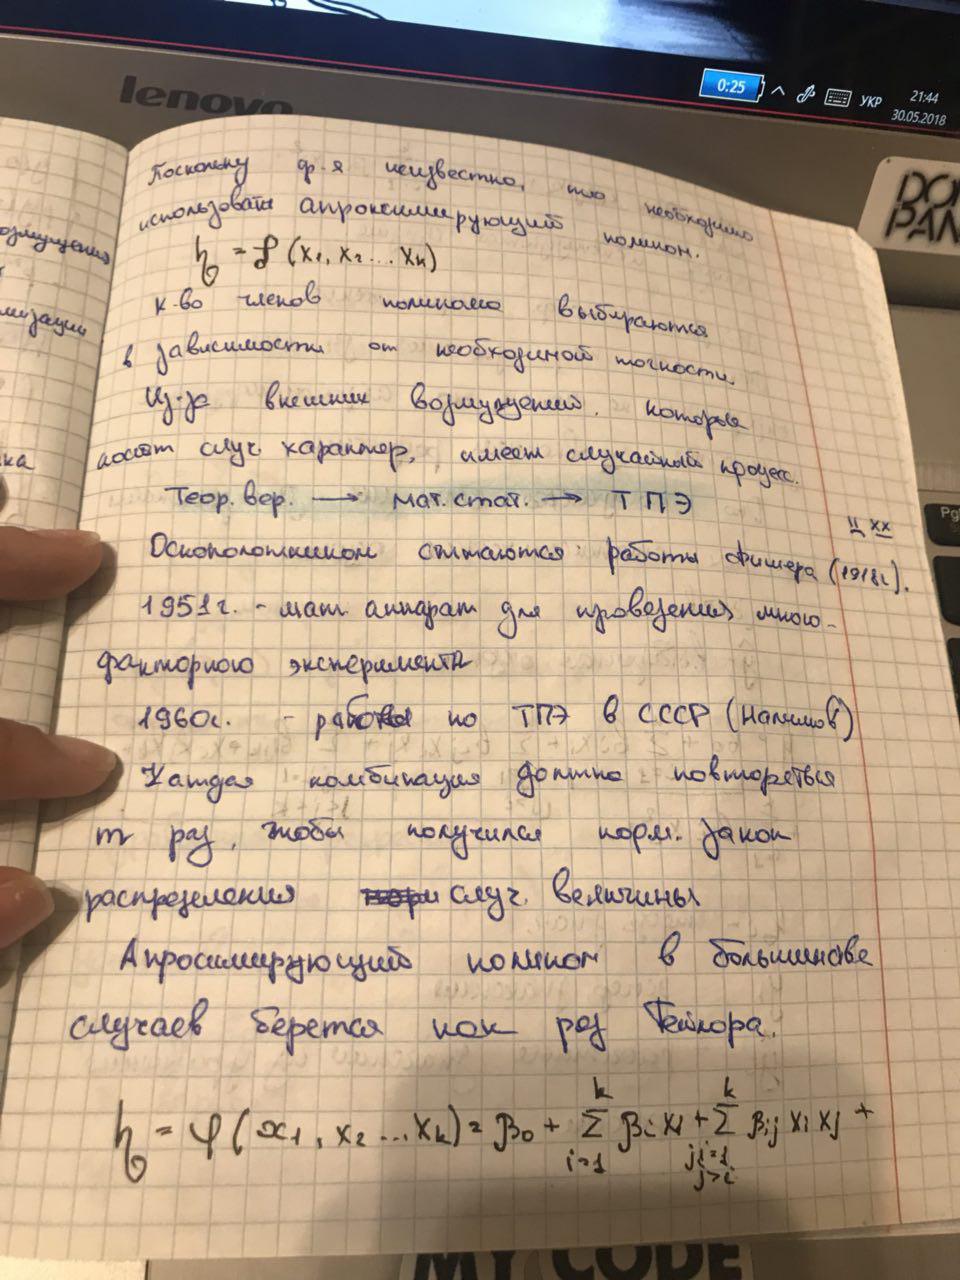 lenovo
0:25
УКР
21:44
30.05.2018
DON'
PAN
Pg
озмущения
мизации
ка
Поскольку ф-я неизвестно, то необходимо
использовать апроксимирующий полином.
η = φ (x₁, x₂ ... xₖ)
К-во членов полинома выбираются
в зависимости от необходимой точности.
Из-за внешних возмущений, которые
носят случ. характер, имеем случайный процесс.
Теор. вер. → мат. стат. → ТПЭ
ц xx
Осноположником считаются работы Фишера (1918г).
1951г. - мат. аппарат для проведения много-
факторного эксперимента
1960г. - работы по ТПЭ в СССР (Налимов)
Каждая комбинация должна повторяться
m раз, чтобы получился норм. закон
распределения случ. величины
Апросимирующий полином в большинстве
случаев берется как ряд Тейлора.
η = φ (x₁, x₂ ... xₖ) = β₀ + Σ βᵢ xᵢ + Σ βᵢⱼ xᵢ xⱼ +
k k
i=1 j,i=1
j>i
MY CODE